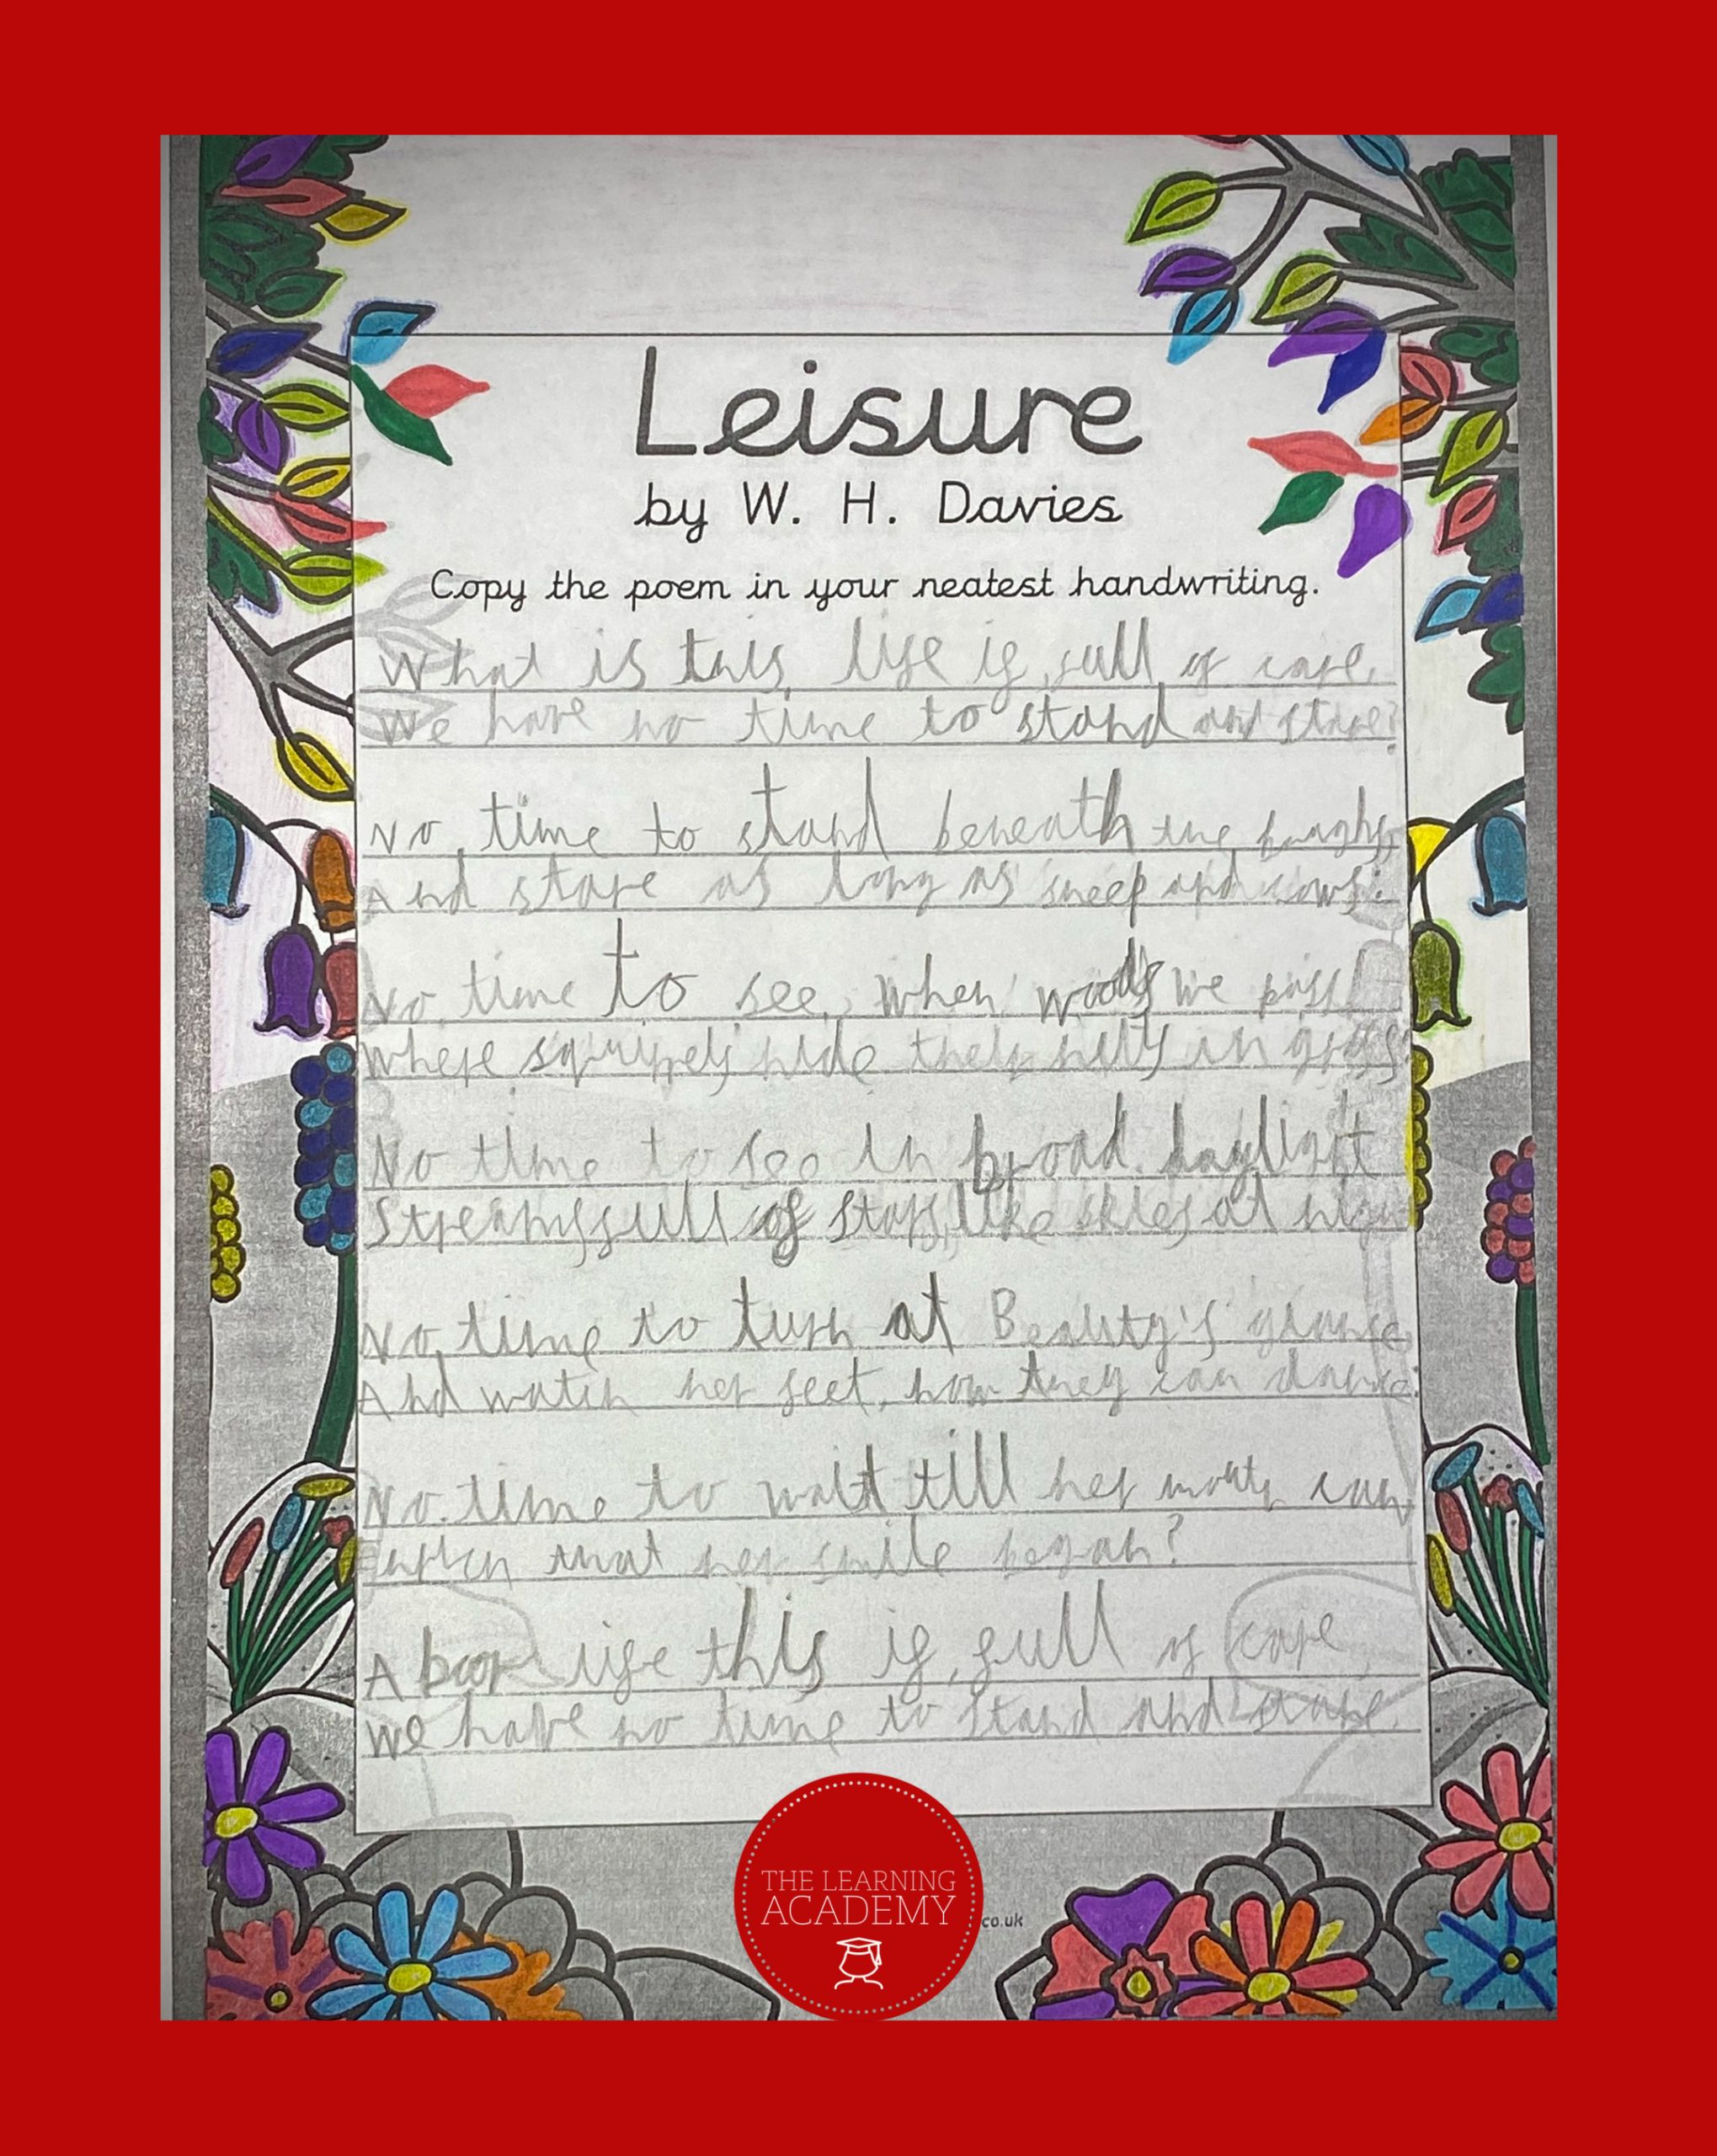 Leisure
by W. H. Davies
Copy the poem in your neatest handwriting.
What is this life if, full of care,
We have no time to stand and stare?
No time to stand beneath the boughs,
And stare as long as sheep and cows:
No time to see, when woods we pass,
Where squirrels hide their nuts in grass
No time to see in broad daylight
Streams full of stars, like skies at nigh
No time to turn at Beauty's glance,
And watch her feet, how they can dance:
No time to wait till her mouth can
that her smile began?
A poor life this if, full of care,
We have no time to stand and stare.
THE LEARNING
ACADEMY
co.uk